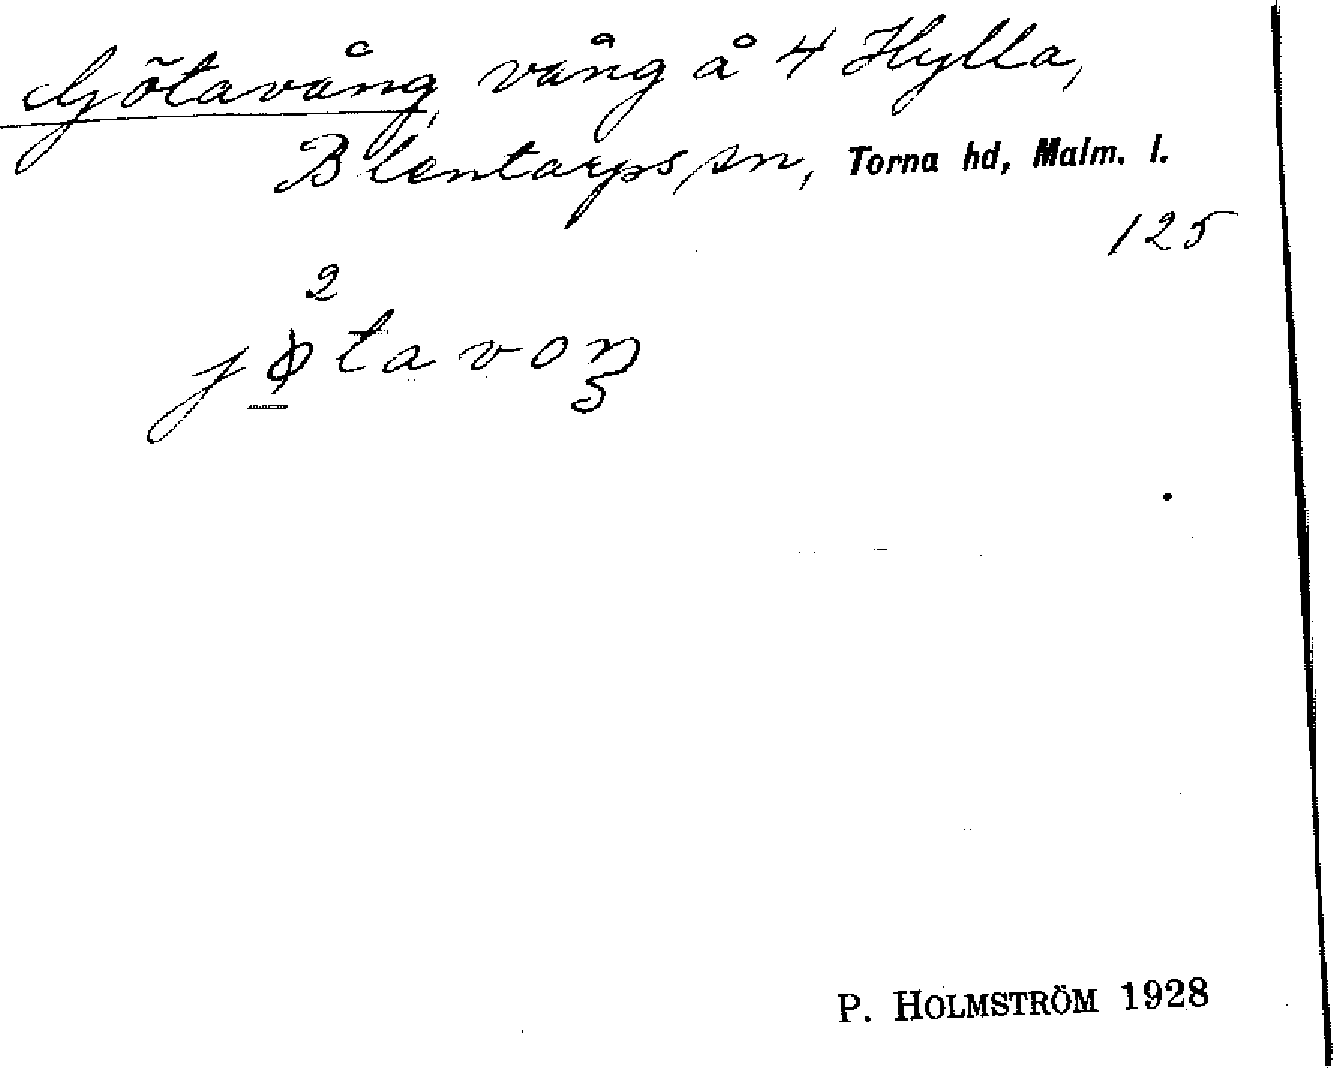 Götavång, vång å 4 Hylla,
Blentarps sn, Torna hd, Malm. l.
125
2
jøtavoŋ
P. HOLMSTRÖM 1928